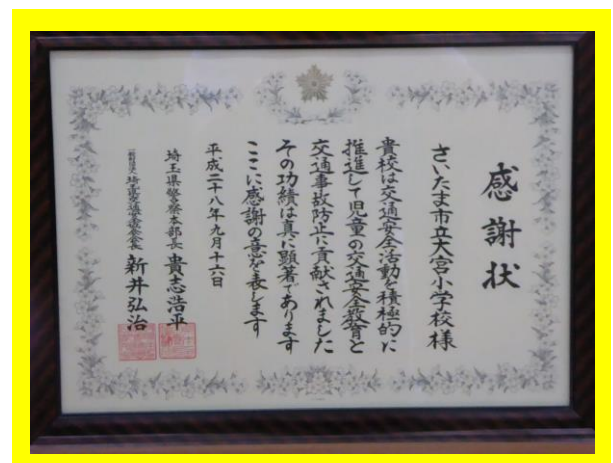 感謝状
さいたま市立大宮小学校様
貴校は交通安全活動を積極的に
推進して児童の交通安全教育と
交通事故防止に貢献されました
その功績は真に顕著であります
ここに感謝の意を表します
平成二十八年九月十六日
埼玉県警察本部長 貴志浩平
新井弘治